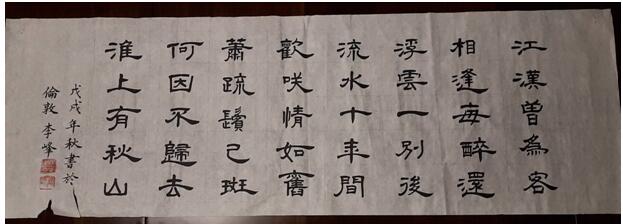 江漢曾為客
相逢每醉還
浮雲一別後
流水十年間
歡咲情如舊
蕭疏鬢已斑
何因不歸去
淮上有秋山
戊戌年秋書於
倫敦 李峰